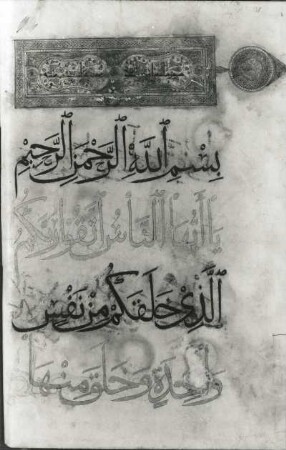 بِسْمِ ٱللَّهِ ٱلرَّحْمَٰنِ ٱلرَّحِيمِ
يَا أَيُّهَا ٱلنَّاسُ ٱتَّقُوا رَبَّكُمُ
ٱلَّذِي خَلَقَكُمْ مِنْ نَفْسٍ
وَاحِدَةٍ وَخَلَقَ مِنْهَا